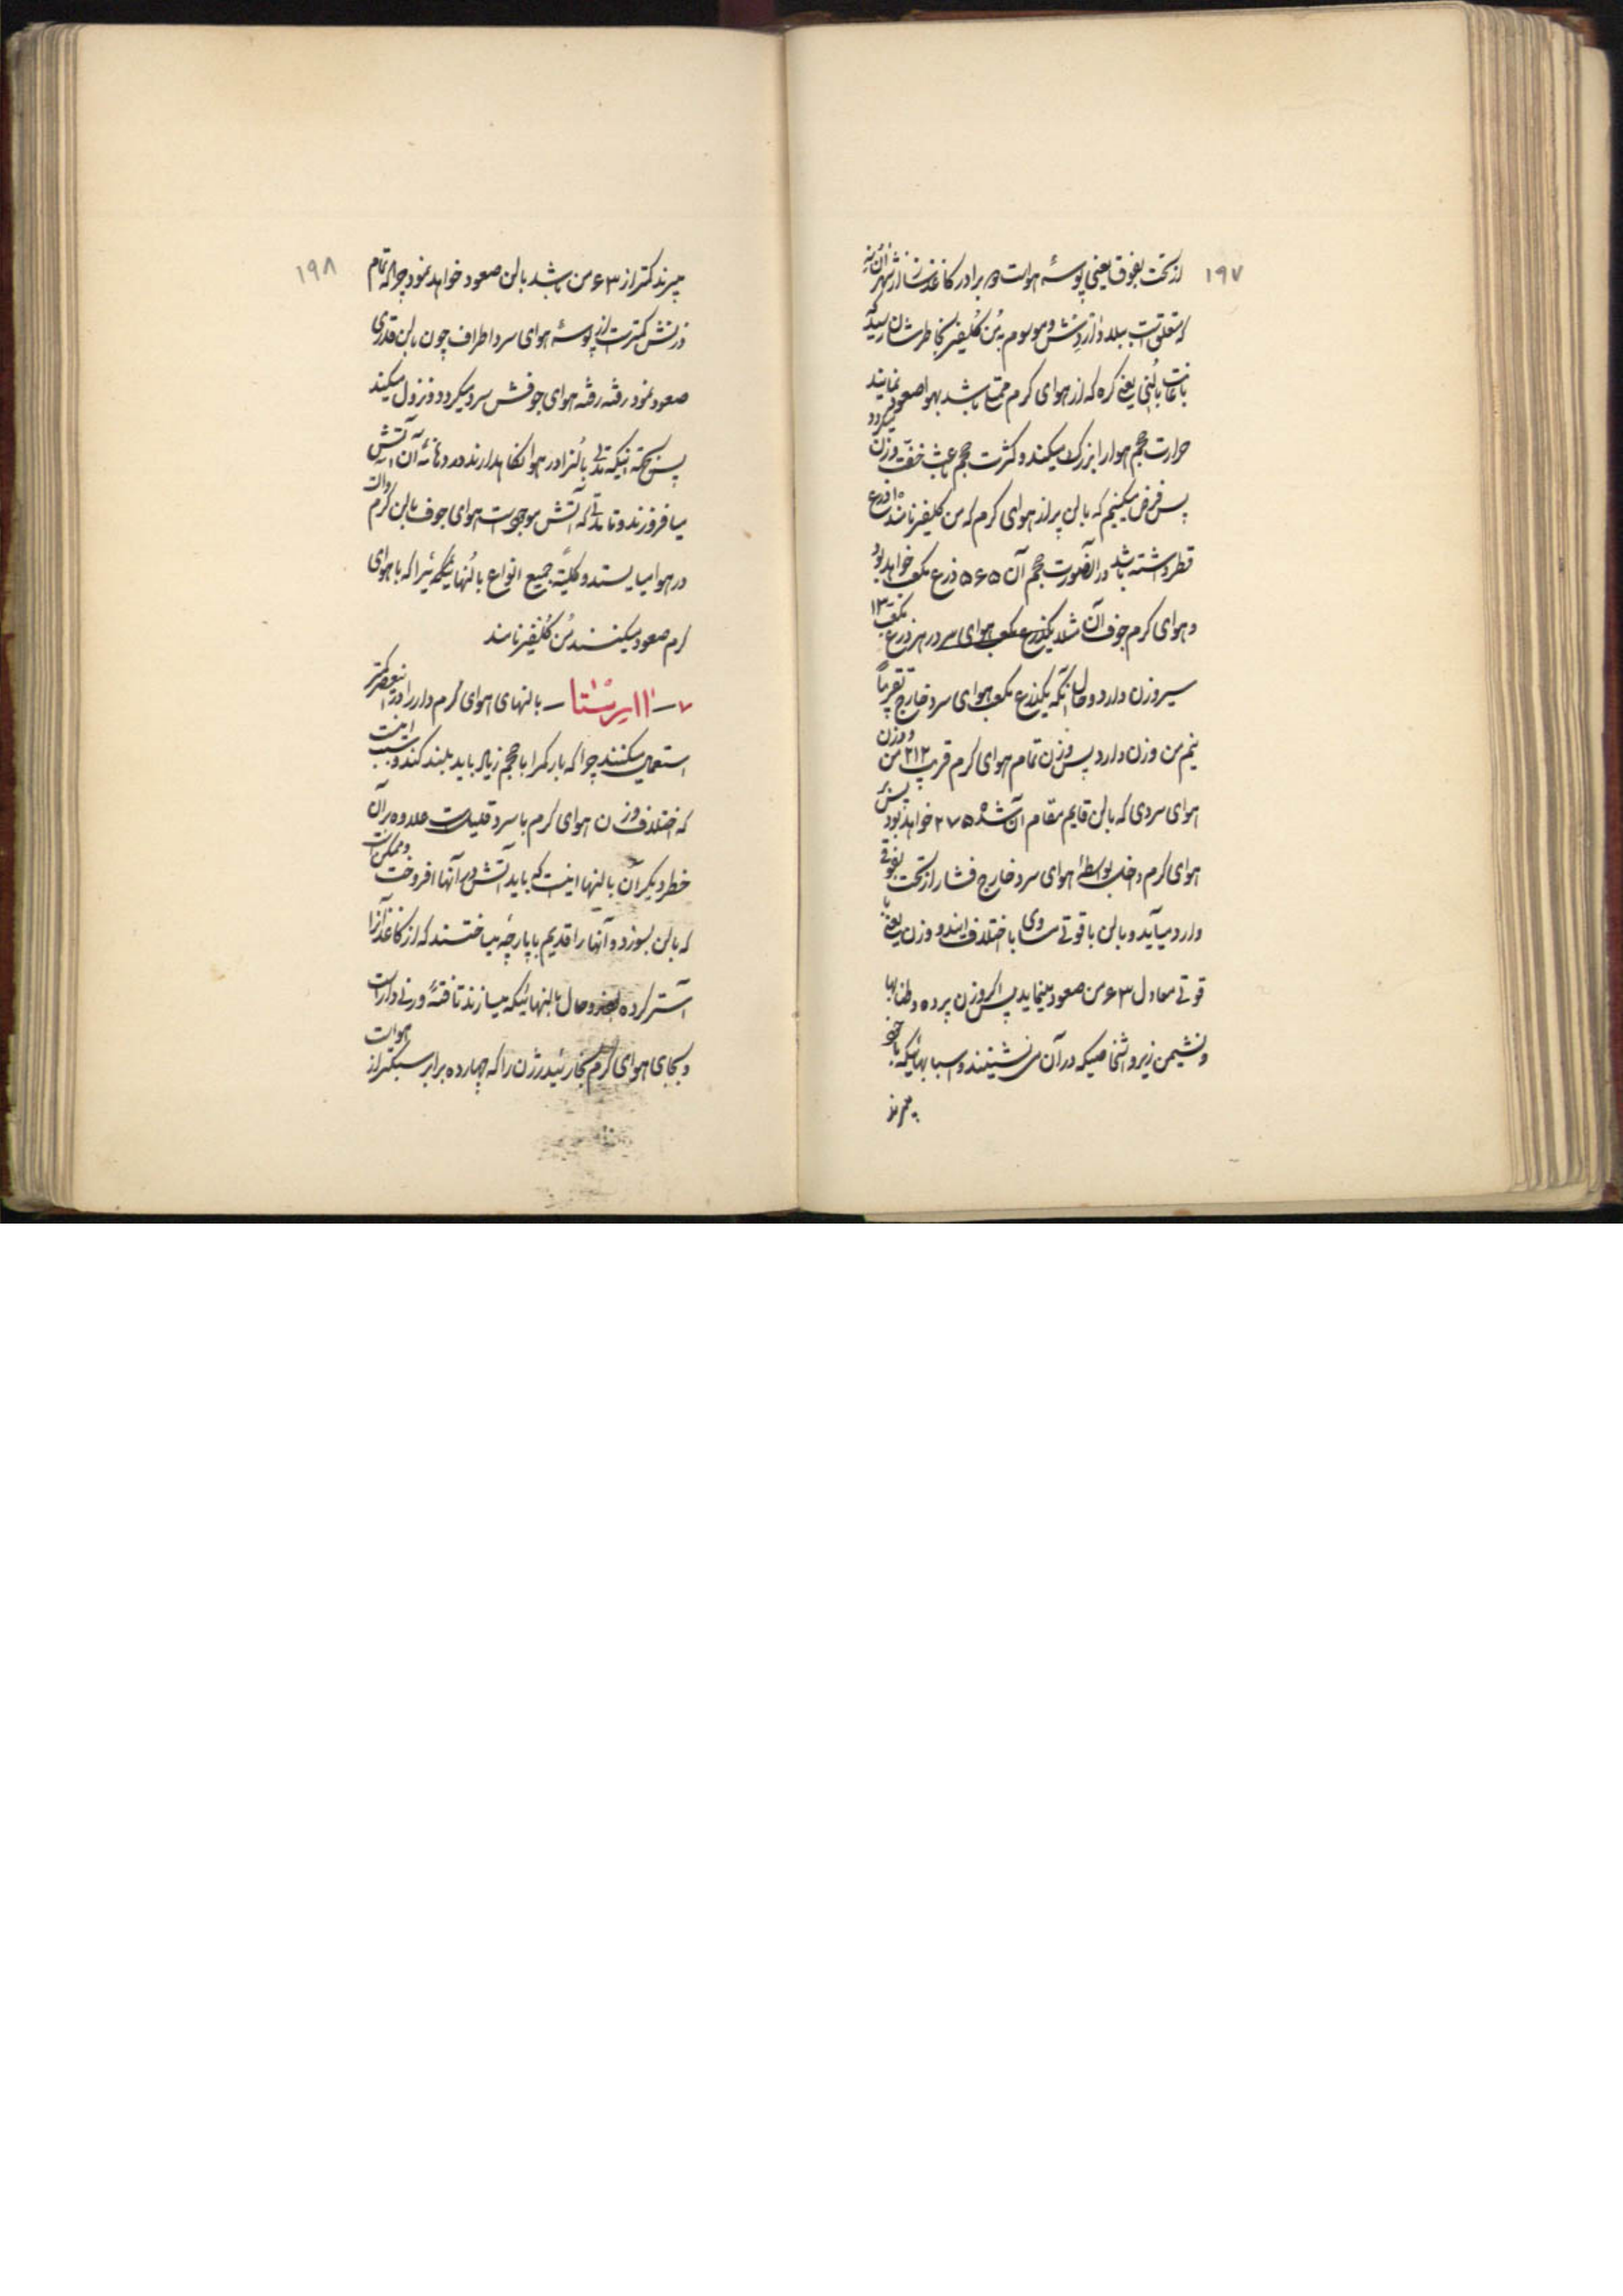 ۱۹۷
از تحت بفوق یعنی پوسهٔ هوا است دو برادر کاغذساز از شهر
که متعلق است ببلد و موسوم بمن گلفیر بخاطرشان رسید که
باعانت بالنی یعنی کرهٔ که از هوای گرم ممتلی باشد بهوا صعود نمایند
حرارت حجم هوا را بزرگ میکند و کثرت حجم باعث خفت وزن میگردد
پس فرض میکنیم که بالن پر از هوای گرم که من گلفیر نامند ۱۰ ذرع
قطر داشته باشد در آنصورت حجم آن ۵۶۵ ذرع مکعب خواهد بود
و هوای گرم جوف آن مثلا یکذرع مکعب هوای در هر ذرع مکعب ۱۳
سیر وزن دارد و حال آنکه یکذرع مکعب هوای سرد خارج تقریباً
نیم من وزن دارد پس وزن تمام هوای گرم قریب ۲۱۲ من و وزن
هوای سردی که بالن قایم مقام آن شده ۲۷۵ خواهد بود پس بر
هوای گرم داخل بواسطهٔ هوای سرد خارج فشار از تحت بفوقی
وارد میآید و بالن با قوتی مساوی با اختلاف ایندو وزن یعنی با
قوتی معادل ۶۳ من صعود مینماید پس اگر وزن پرده و طنابها
و نشیمن زیر و اشخاصیکه در آن می نشینند و اسبابهائیکه با خود
میبرند
۱۹۸
میبرند کمتر از ۶۳ من باشد بالن صعود خواهد نمود چرا که تمام
وزنش کمتر است از پوسهٔ هوای سرد اطراف چون بالن قدری
صعود نمود رفته رفته هوای جوفش سرد میگردد و نزول میکند
پس بجهة اینکه مدتی بالنرا در هوا نگاهدارند در دهانهٔ آن آتش
میافروزند و تا مدتی که آتش موجود است هوای جوف بالن گرم و بالن
در هوا میایستد و کلیةً جمیع انواع بالنهائیکه را که با هوای
گرم صعود میکنند من گلفیر نامند
۷ — — بالنهای هوای گرم دار را در اینعصر کمتر
استعمال میکنند چرا که بار کمرا با حجم زیاد باید بلند کند و سبب اینست
که اختلاف وزن هوای گرم با سرد قلیل است علاوه بر آن
خطر دیگر آن بالنها اینست که باید آتش در آنها افروخت و ممکن است
که بالن بسوزد و آنها را قدیم با پارچهٔ میساختند که از کاغذ آنرا
آستر کرده بودند و حال بالنهائیکه میسازند تافتهٔ است
و بجای هوای گرم بخار ئیدرژن را که چهارده برابر سبکتر از هوا است